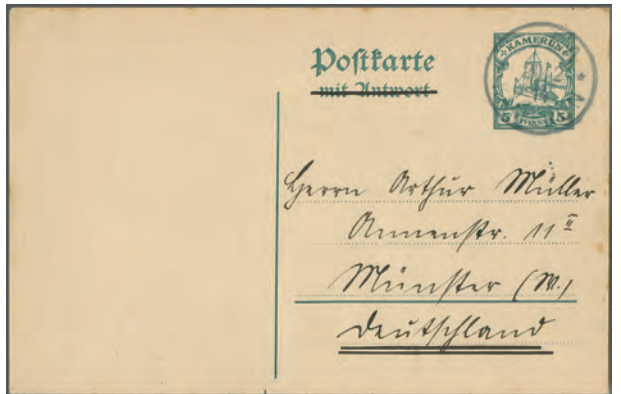 Postkarte
mit Antwort
KAMERUN
5 PFENNIG 5
Herrn Arthur Müller
Annenstr. 11 II
Münster (W.)
Deutschland